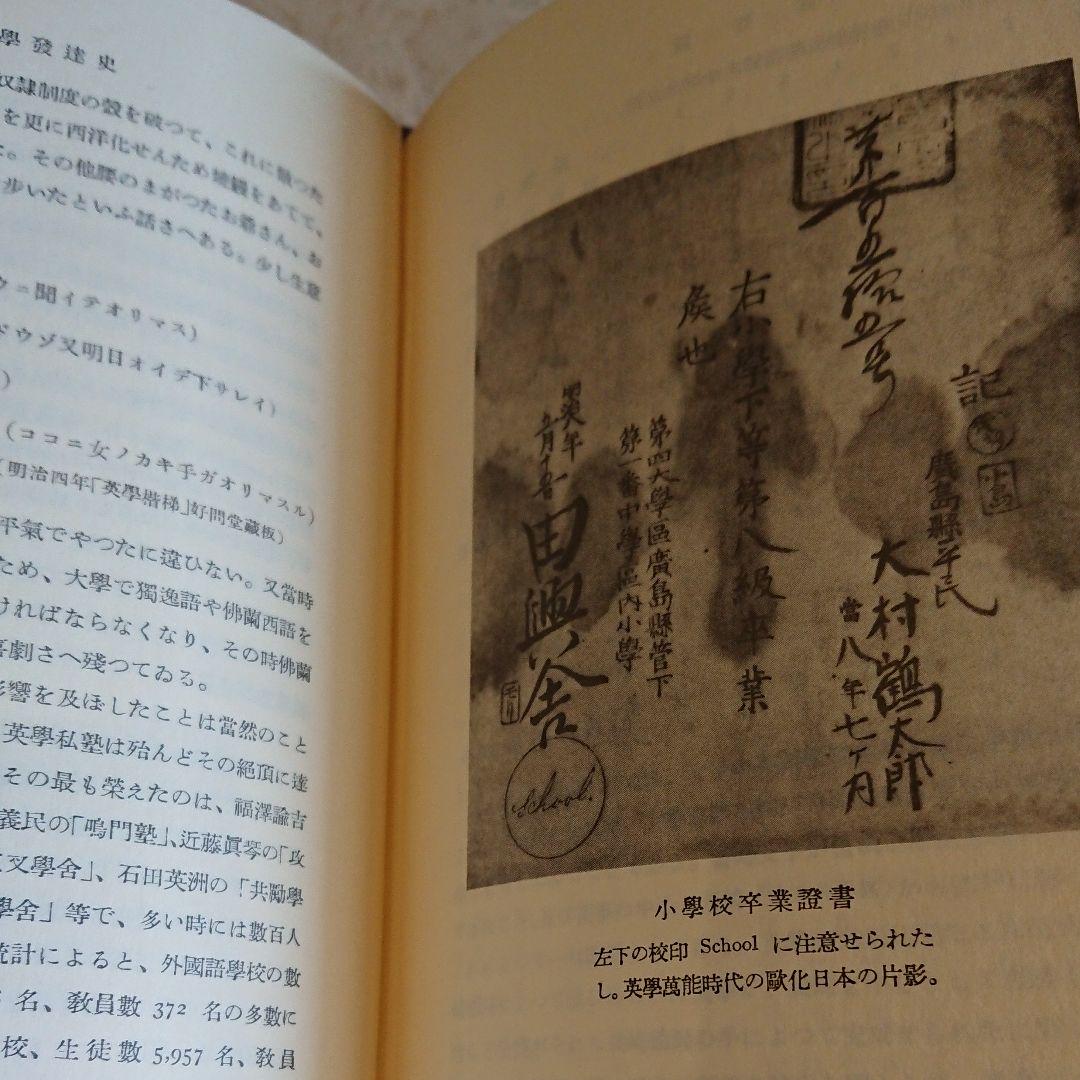 學發達史
奴隷制度の殼を破つて、これに倣つた
を更に西洋化せんため
その他腰のまがつたお爺さん、お
歩いたといふ話さへある。少し生意
ウニ聞イテオリマス)
ドウゾ又明日オイデ下サレイ)
)
(ココニ女ノカキ手ガオリマスル)
(明治四年「英學楷梯」好問堂藏板)
平氣でやつたに違ひない。又當時
ため、大學で獨逸語や佛蘭西語を
ければならなくなり、その時佛蘭
喜劇さへ殘つてゐる。
影響を及ぼしたことは當然のこと
英學私塾は殆んどその絶頂に達
その最も榮えたのは、福澤諭吉
義民の「鳴門塾」、近藤眞琴の「攻
叉學舍」、石田英洲の「共勵學
學舍」等で、多い時には數百人
統計によると、外國語學校の數
名、敎員數 372 名の多數に
校、生徒數 5,957 名、敎員
第百五拾五号
記
廣島縣平民
大村鶴太郎
當八年七ヶ月
右小學下等第八級卒業
候也
第四大學區廣島縣管下
第一番中學區內小學
School.
小學校卒業證書
左下の校印 School に注意せられた
し。英學萬能時代の歐化日本の片影。